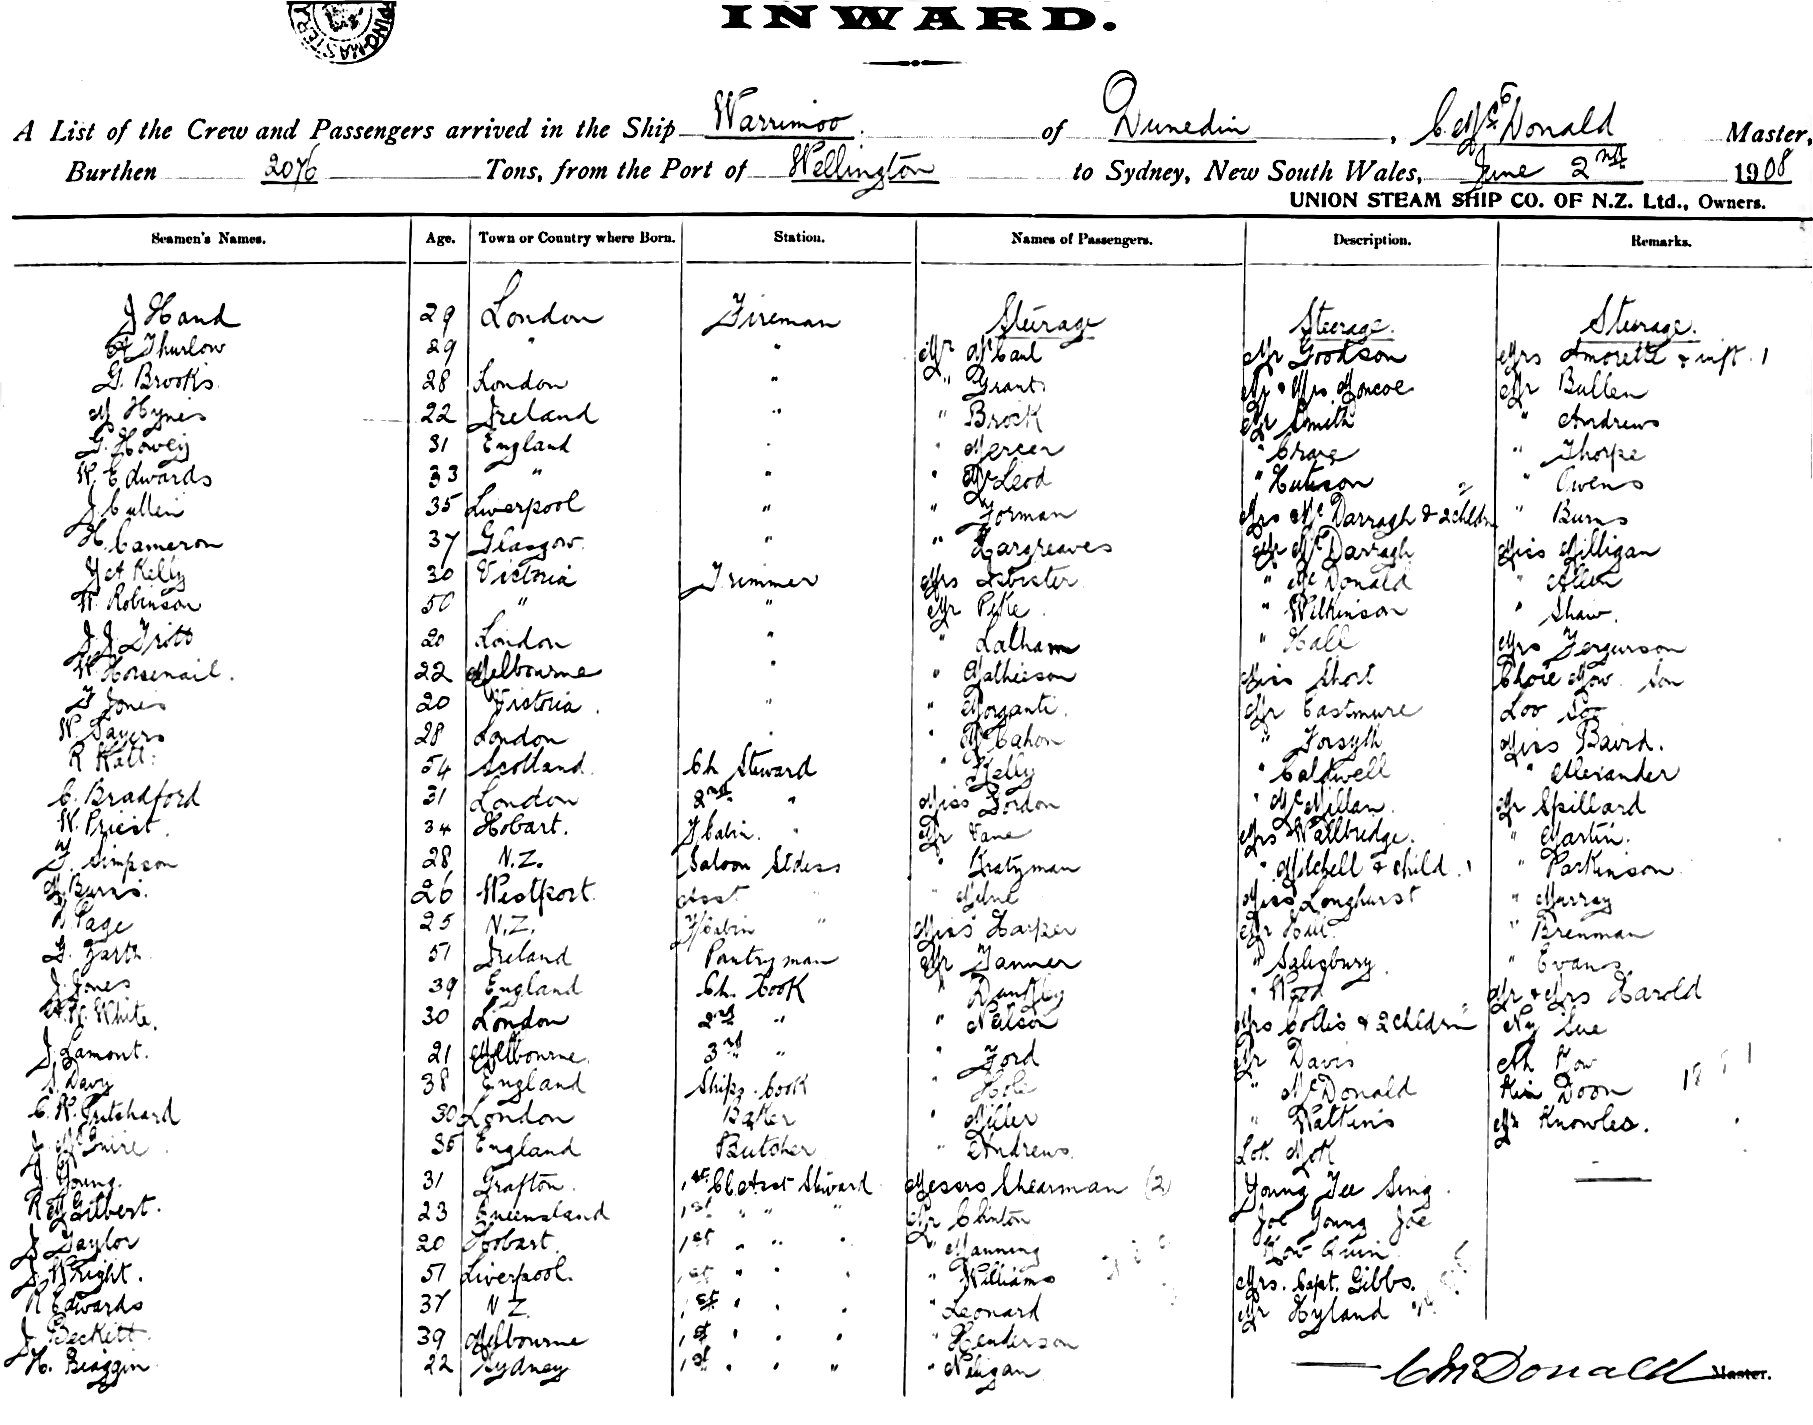 INWARD.
A List of the Crew and Passengers arrived in the Ship Warrimoo of Dunedin, C McDonald Master,
Burthen 2076 Tons, from the Port of Wellington to Sydney, New South Wales, June 2nd 1908
UNION STEAM SHIP CO. OF N.Z. Ltd., Owners.
Seamen's Names. Age. Town or Country where Born. Station. Names of Passengers. Description. Remarks.
J Hand 29 London Fireman Steerage Steerage. Steerage.
A Thurlow 29 " " Mr McCaul Mr Goodson Mrs Amoretti & inft. 1
G. Brooks 28 London " " Grant Mr & Mrs Roncoe Mr Bullen
M Hynes 22 Ireland " " Brock Mr Smith " Andrews
G. Howey 31 England " " Mercer " Crave " Thorpe
W. Edwards 33 " " " McLeod " Hutison " Owens
J. Cullen 35 Liverpool " " Forman Mrs McDarragh & 2 childn " Burns
H. Cameron 37 Glasgow " " Hargreaves Mr McDarragh Miss Milligan
Kelly 30 Victoria Trimmer Mrs Isbister " McDonald " Allen
W. Robinson 50 " " Mr Peke " Wilkinson " Shaw.
J. J. Tritt 20 London " " Lalham " Hall Mrs Fergurson
W Horsenail. 22 Melbourne " " Mathieson Miss Short Choie Mow Son
F Jones 20 Victoria. " " Morganti. Mr Eastmure Loo Soo
W. Sayers 28 London " " McCahon " Forsyth Miss Baird.
R Hall. 54 Scotland. Ch Steward " Kelly " Caldwell " Alexander
C. Bradford 31 London 2nd " Miss Gordon " McMillan. Mr Spillard
W. Priest. 34 Hobart. F Cabin. " Mr Vane Mrs Wallbridge. " Martin.
F. Simpson 28 N.Z. Saloon Stdess " Pratyman " Mitchell & child. 1 " Parkinson
M. Burns. 26 Westport. Asst " Milne Miss Longhurst " Murray
Page 25 N.Z. F/Cabin " Miss Harper Mr Hill. " Brenman
G. Garth. 51 Ireland Pantryman Mr Tanner " Salisbury. " Evans
J. Jones 39 England Ch. Cook " " Wood Mr & Mrs Harold
White. 30 London 2nd " " Neilson Mrs Collis & 2 childrn Ny Lue
J. Lamont. 21 Melbourne. 3rd " " Ford Mr Davis Ah Kow
S. Davy 38 England Ships. Cook " Hole " McDonald Kin Doon
C. W. Pritchard 30 London Baker " Miller " Watkins Mr Knowles.
J. McGuire 35 England Butcher " Andrews Lok Mok
J. Young. 31 Grafton. 1st Cl Asst Steward Messrs Shearman (2) Young Tee Sing.
R. M Gilbert. 23 Queensland 1st " " " Mr Clinton Joe Young Joe
J Taylor 20 Hobart. 1st " " " " Manning Kow Quin
J. Wright. 51 Liverpool. 1st " " " " Williams Mrs. Capt. Gibbs.
R Edwards 37 N.Z. 1st " " " " Leonard Mr Hyland
J Beckett. 39 Melbourne 1st " " " " Henderson
H. Biaggin 22 Sydney 1st " " " " Neligan
C McDonald Master.